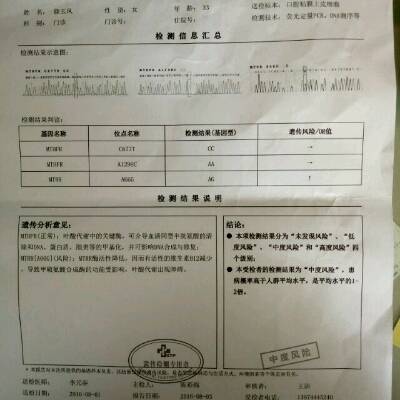 姓 名: 性 别: 女 年 龄: 33 送检标本: 口腔粘膜上皮细胞
科 别: 门诊 门诊号: 住院号: 检测技术: 荧光定量PCR、DNA测序等
检 测 信 息 汇 总
检测结果示意图:
检测结果判读:
基因名称 位点名称 检测结果(基因型) 遗传风险/OR值
MTHFR C677T CC →
MTHFR A1298C AA →
MTRR A66G AG ↑
检 测 结 果 说 明
遗传分析意见:
MTHFR(正常): 叶酸代谢中的关键酶, 可介导血清同型半胱氨酸的清
除和DNA、蛋白质、脂类等的甲基化, 并可影响DNA合成与修复;
MTRR[A66G](风险): MTRR酶活性降低, 因而有活性的维生素B12减少
, 导致甲硫氨酸合成酶的功能受影响, 叶酸代谢出现障碍。
结论:
● 本项检测结果分为“未发现风险”、“低
度风险”、“中度风险”和“高度风险”四
个级别;
● 本受检者的检测结果为“中度风险”, 患
病概率高于人群平均水平, 是平均水平的1-
2倍。
中度风险
送检医师: 审核者: 王
送检日期: 2016-08-01 2016-08-05